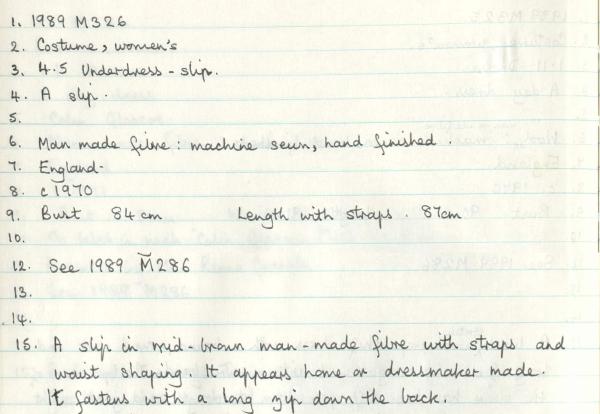 1. 1989 M326
2. Costume, women's
3. 4.5 Underdress - slip.
4. A slip.
5.
6. Man made fibre : machine sewn, hand finished.
7. England-
8. c1970
9. Bust 84cm Length with straps. 87cm
10.
12. See 1989 M286
13.
14.
15. A slip in mid-brown man-made fibre with straps and
waist shaping. It appears home or dressmaker made.
It fastens with a long zip down the back.